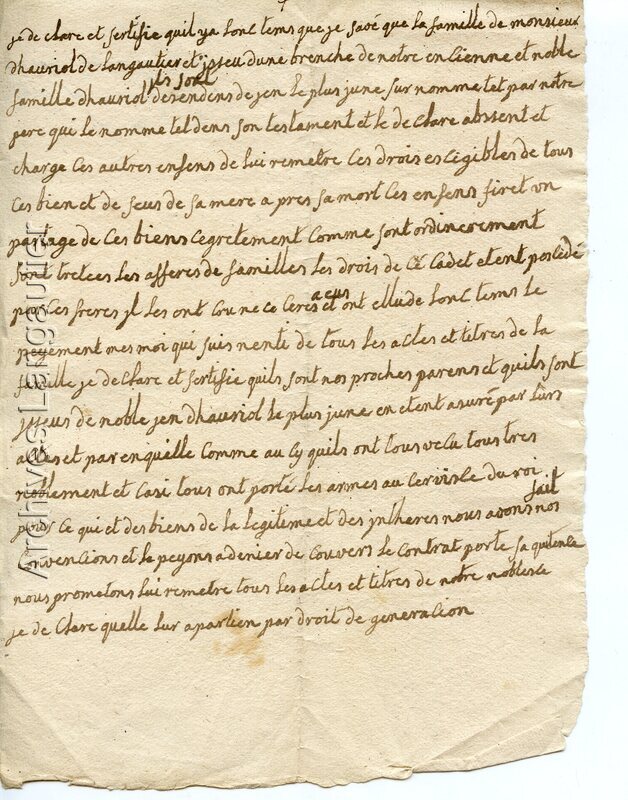 je de clare et sertifie quil ya lonc tems que je savé que la famille de monsieur
dhauriol de Langautier et jsseu dune brenche de notre encienne et noble
ils sont
famille dhauriol desendens de jen le plus june surnomme tel par notre
pere qui le nomme tel dens son testament et le de clare abssent et
charge ces autres enfens de lui remetre ces drois escigibles de tous
ces bien et de seus de sa mere a pres sa mort ces enfens firet un
partage de ces biens cegretement comme sont ordinerement
sont tretees les afferes de familles les drois de ce cadet etent posedé
par ces freres jl les ont
acus
et ont ellude lonc tems le
peyement mes moi qui suis nenti de tous les actes et titres de la
famille je de clare et sertifie quils sont nos proches parens et quils sont
jsseus de noble jen dhauriol le plus june en etent asuré par lurs
actes et par enquille comme au cy quils ont tous vecu tous tres
noblement et casi tous ont porté les armes au cervisce du roi
fait
pour ce qui et des biens de la legiteme et des jntheres nous avons nos
convencions et le peyons a denier de couvers le contrat porte sa quitence
nous prometons lui remetre tous les actes et titres de notre noblesce
je de clare quelle lur apartien par droit de generacion
Archives Langautier